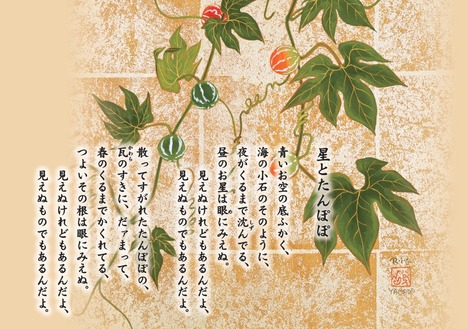 星とたんぽぽ
青いお空の底ふかく、
海の小石のそのように、
夜がくるまで沈んでる、
昼のお星は眼にみえぬ。
見えぬけれどもあるんだよ、
見えぬものでもあるんだよ。
散ってすがれたたんぽぽの、
瓦のすきに、だァまって、
春のくるまでかくれてる、
つよいその根は眼にみえぬ。
見えぬけれどもあるんだよ、
見えぬものでもあるんだよ。